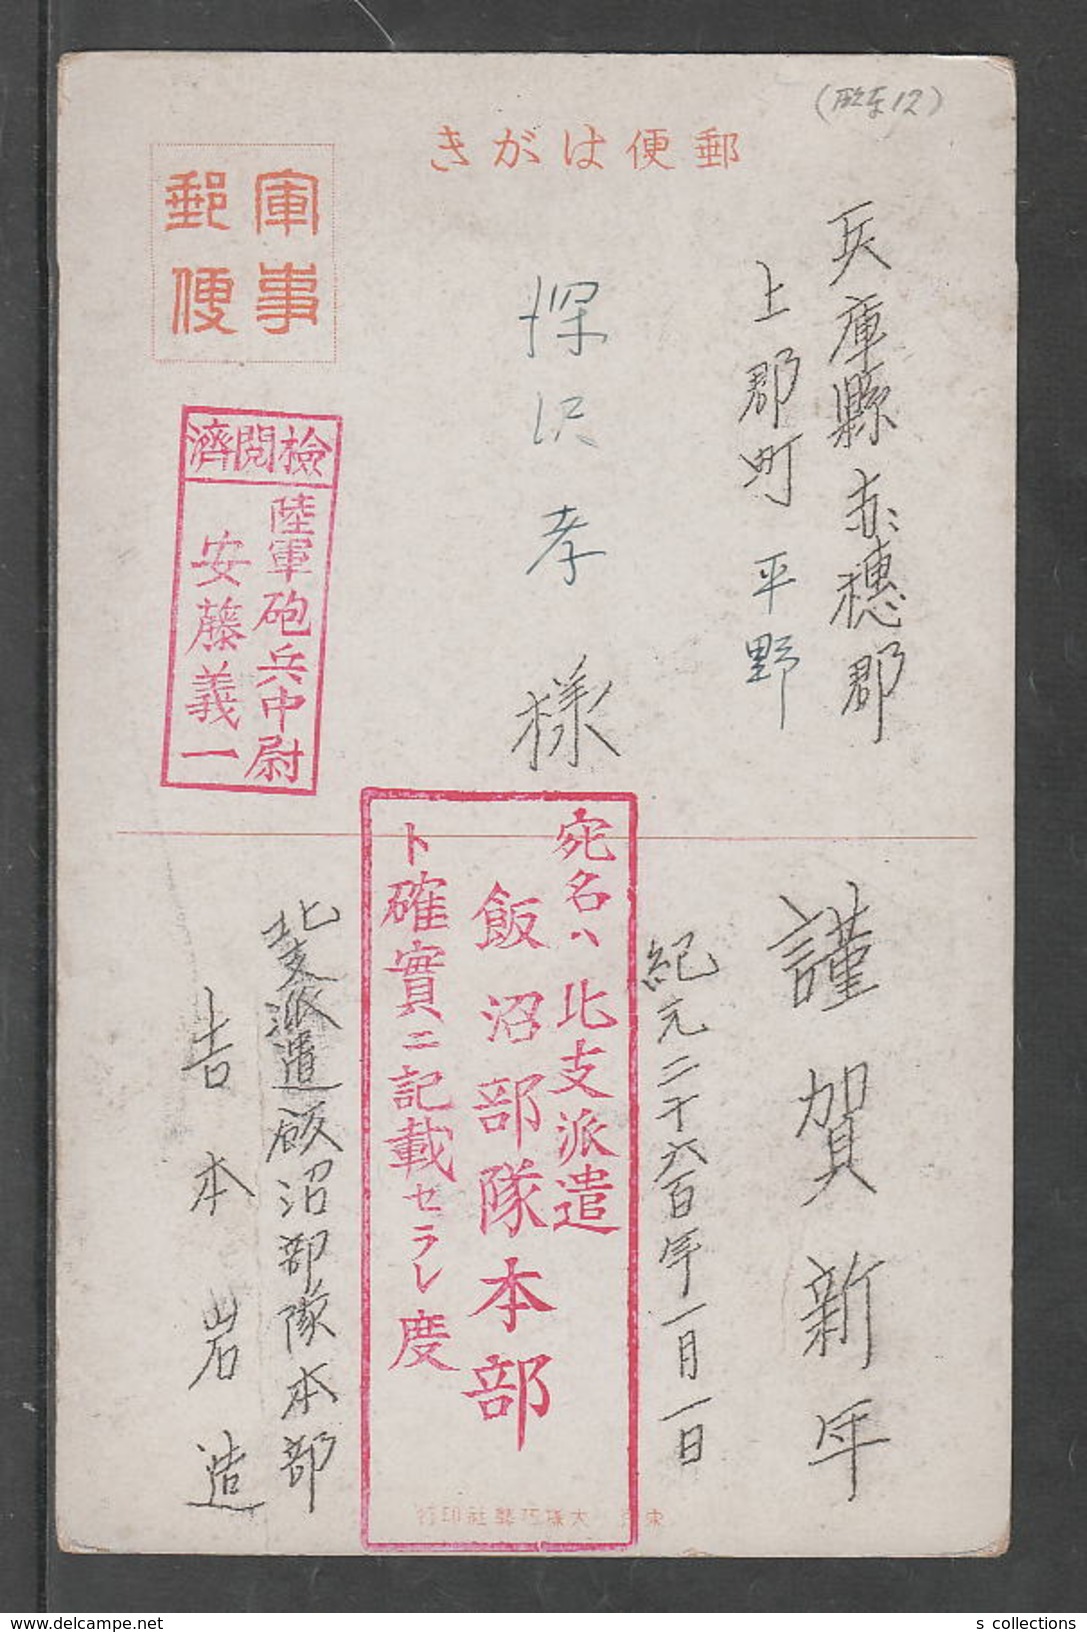 郵便はがき
軍事
郵便
兵庫縣赤穗郡
上郡町 平野
深沢孝様
檢閲濟
陸軍砲兵中尉
安藤義一
謹賀新年
紀元二千六百年一月一日
宛名ハ北支派遣
飯沼部隊本部
ト確實ニ記載セラレ度
北支派遣飯沼部隊本部
吉本岩造
大塚巧藝社印行
s collections